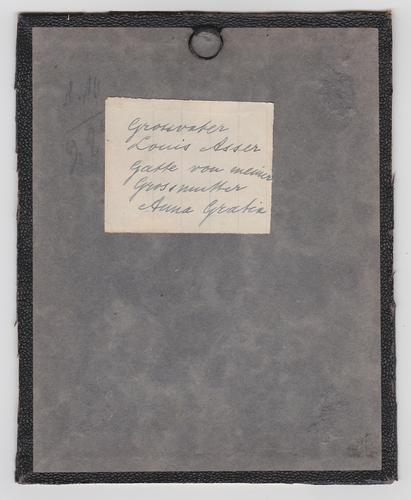 Grossvater
Louis Asser
Gatte von meiner
Grossmutter
Anna Gratia